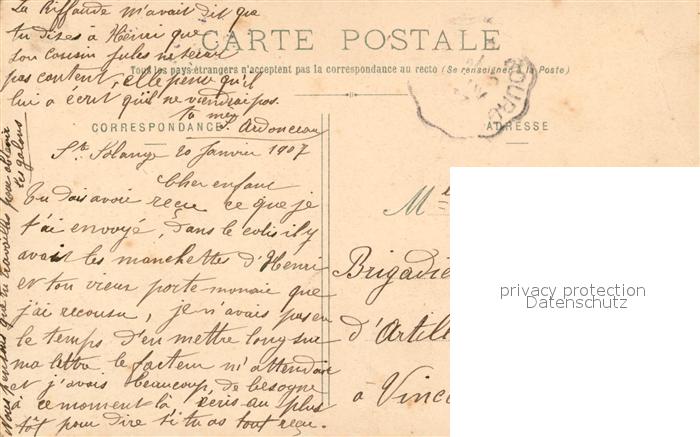 La Riffaude m'avait dit que
tu dises a Henri que
son cousin jules ne serai
pas content, elle pense qu'il
lui a écrit qu'il ne viendrai pas.
ta mère
S. Ardonceau
CARTE POSTALE
Tous les pays étrangers n'acceptent pas la correspondance au recto (Se renseigner à la Poste)
CORRESPONDANCE
ADRESSE
BOURG
Ste Solange 20 Janvier 1907
Cher enfant
Tu dois avoir reçu ce que je
t'ai envoyé, dans le colis il y
avait les manchettes d'Henri
et ton vieux porte monaie que
j'ai recousu, je n'avais pas eu
le temps d'en mettre long sur
ma lettre le facteur m'attendait
et j'avais beaucoup de besogne
à ce moment là ecris au plus
tôt pour dire si tu as tout reçu.
Nous pensons que tu travailles pour obtenir
tes galons
M
Brigadie
d'Artill
a Vince
privacy protection
Datenschutz